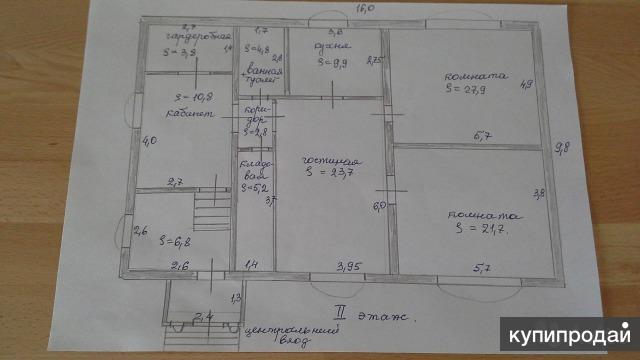 16,0
2,7
гардеробная
S = 3,8
1,4
1,7
S=4,8
2,8
ванная
туалет
кухня
S=9,9
2,75
комната
S = 27,9
4,9
5,7
S = 10,8
кабинет
4,0
2,7
кори-
дор
S=2,8
гостиная
S = 23,7
6,0
3,95
9,8
кладо-
вая
S=5,2
3,7
1,4
комната
S = 21,7.
3,8
5,7
2,6
S=6,8
2,6
1,3
2,4
центральный
вход
II этаж.
купипродай